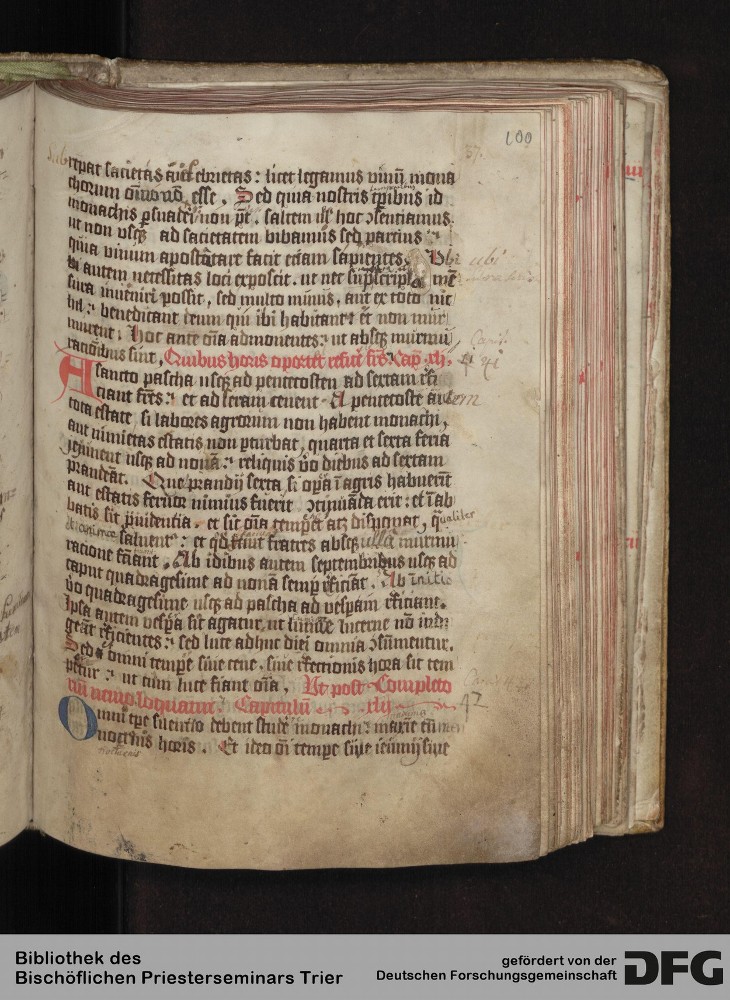 100
57.
repat sacietas aut ebrietas : licet legamus vinū mona
chorum omīo nō esse . Sed quia nostris tꝑibus id
monachis ꝑsuaderi non pōt . saltem ul hoc ↄsentiamus
ut non usqꝫ ad sacietatem bibamus sed partius
quia vinum apostatare facit etiam sapientes . Ubi
autem necessitas loci exposcit . ut nec supͣscͥpta mē
sura inveniri possit , sed multo minus , aut ex toto nic
hil : benedicant deum qui ibi habitant et non mur
murent : Hoc ante oīa admonentes : ut absqꝫ murmu
racōibus sint , Quibus horis oportet reficī frēs Cap xlj .
A sancto pascha usqꝫ ad pentecosten ad sextam refi
ciant frēs : et ad seram cenent . A pentecoste autem
tota estate , si labores agrorum non habent monachi ,
aut nimietas estatis non ꝑturbat , quarta et sexta feria
jejunent usqꝫ ad nonā : reliquis vo diebus ad sextam
prandeāt . Que prandij sexta si oꝑa ī agris habuerīt
aut estatis fervor nimius fuerit ↄtinuāda erit : et ī ab
batis sit ꝓvidentia . et sic oīa temꝑet atqꝫ disponat , qualiter
et anime salventur : et qd faciūt fratres absqꝫ ulla murmu
ratione faciant . Ab idibus autem septembribus usqꝫ ad
caput quadragesime ad nonā semꝑ reficiāt . Ab initio
vo quadragesime usqꝫ ad pascha ad vesꝑam reficiant .
Ipsa autem vesꝑa sic agatur , ut lumine lucerne nō indi
geāt reficientes : sed luce adhuc diei omnia ↄsumentur .
Sed et omni temꝑe sive cene . sive refectionis hora sic tem
ꝑetur : ut cum luce fiant oīa , Ut post Completo
riū nemo loquatur . Capitulū xlij
42
Omni tꝑe silentio debent studē monachi : maxīe tn
nocturnis horis . Et ideo oī temꝑe sive ieiunij sive
Bibliothek des
Bischöflichen Priesterseminars Trier
gefördert von der
Deutschen Forschungsgemeinschaft
DFG